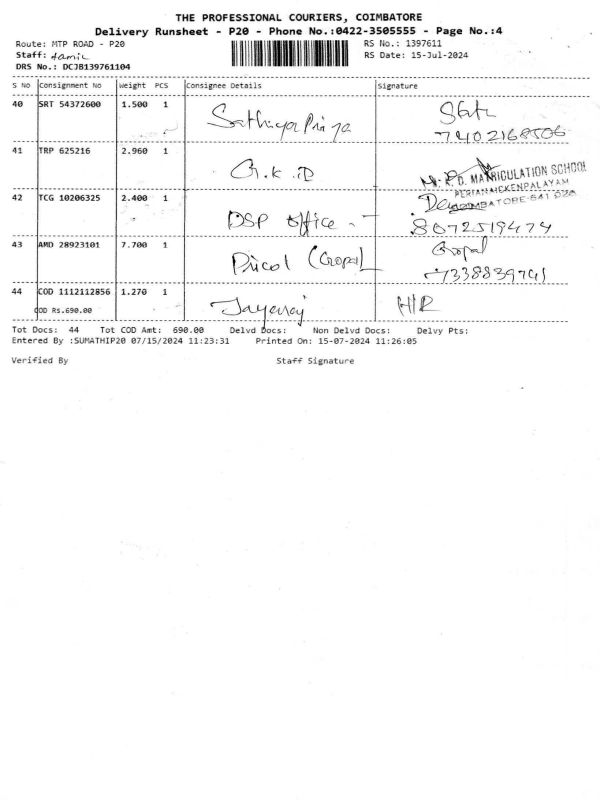 THE PROFESSIONAL COURIERS, COIMBATORE
Delivery Runsheet - P20 - Phone No.:0422-3505555 - Page No.:4
Route: MTP ROAD - P20 RS No.: 1397611
Staff: RS Date: 15-Jul-2024
DRS No.: DCJB139761104
S No Consignment No Weight PCS Consignee Details Signature
40 SRT 54372600 1.500 1 Sathiya Priya
41 TRP 625216 2.960 1 G.K.D
G.K.D. MATRICULATION SCHOOL
PERIANAICKENPALAYAM
COIMBATORE-641 020
42 TCG 10206325 2.400 1 DSP office
8072519474
43 AMD 28923101 7.700 1 Pricol (Gopal Gopal
7338839741
44 COD 1112112856 1.270 1 Jayaraj H/R
COD Rs.690.00
Tot Docs: 44 Tot COD Amt: 690.00 Delvd Docs: Non Delvd Docs: Delvy Pts:
Entered By :SUMATHIP20 07/15/2024 11:23:31 Printed On: 15-07-2024 11:26:05
Verified By Staff Signature